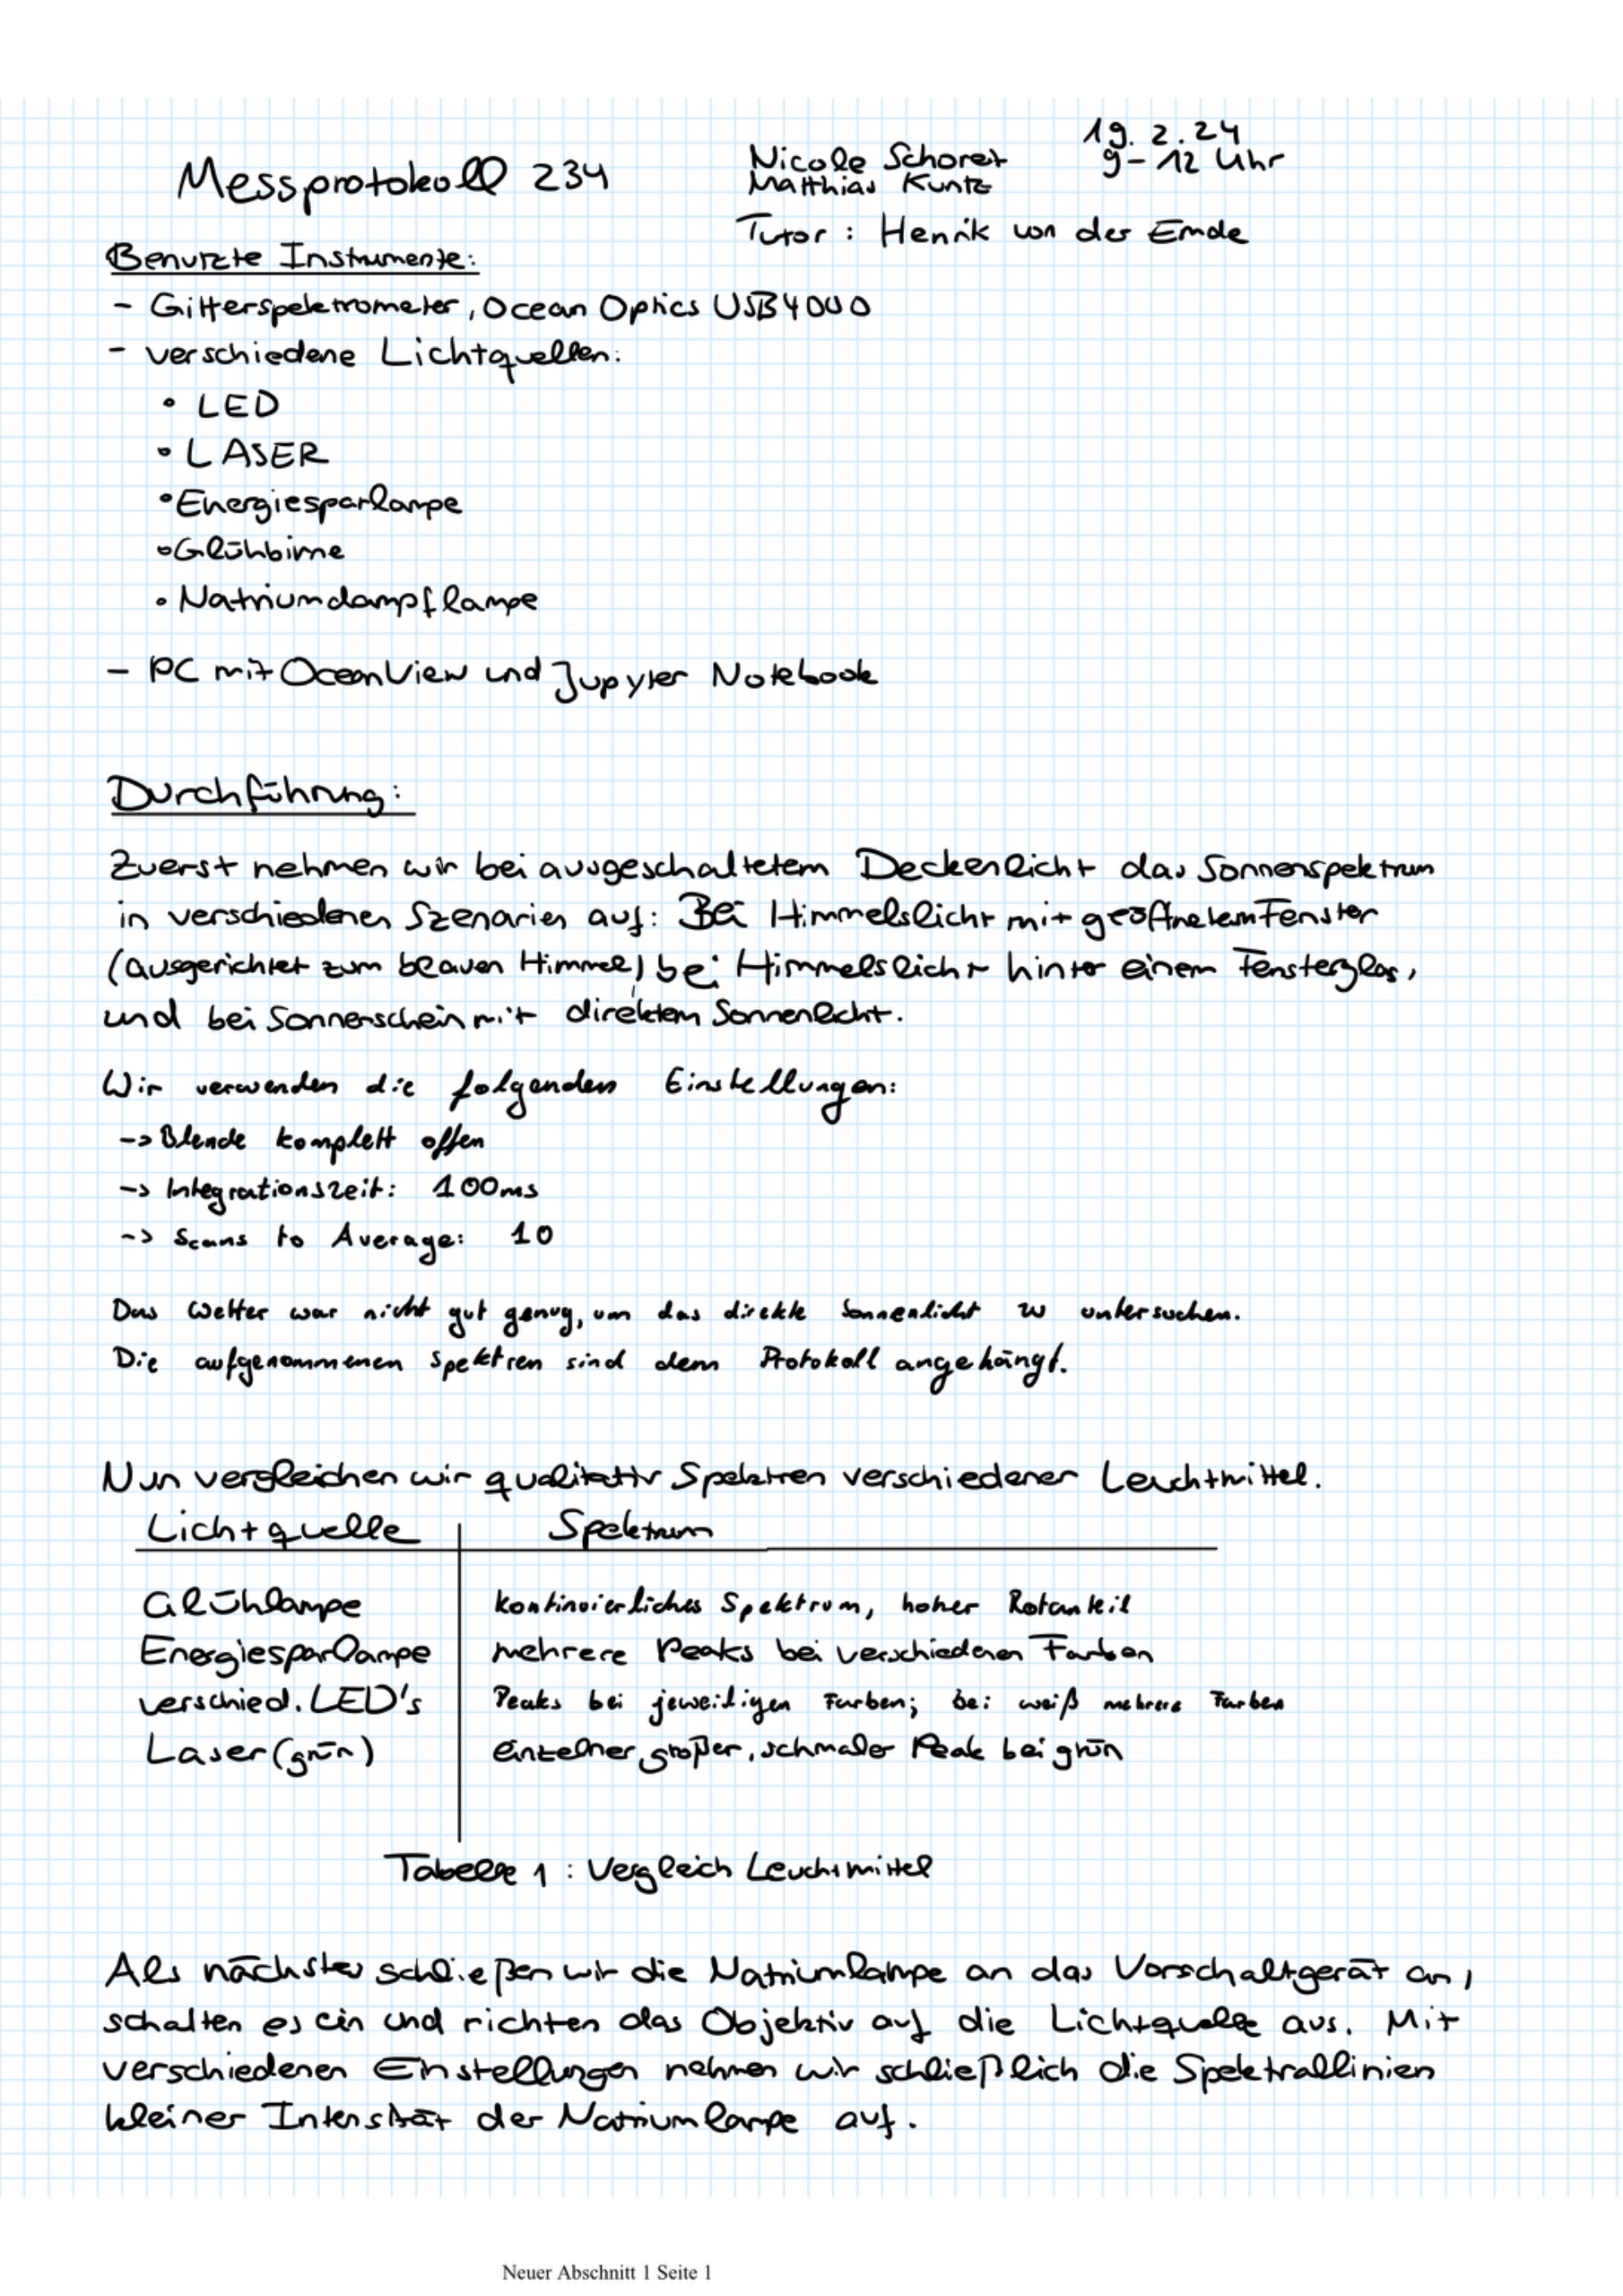 19.2.24
Messprotokoll 234
Nicole Schoreit
9-12 Uhr
Matthias Kuntz
Tutor: Henrik von der Emde
Benutzte Instrumente:
- Gitterspektrometer, Ocean Optics USB4000
- verschiedene Lichtquellen:
• LED
• LASER
• Energiesparlampe
• Glühbirne
• Natriumdampflampe
- PC mit OceanView und Jupyter Notebook
Durchführung:
Zuerst nehmen wir bei ausgeschaltetem Deckenlicht das Sonnenspektrum
in verschiedenen Szenarien auf: Bei Himmelslicht mit geöffnetem Fenster
(ausgerichtet zum blauen Himmel), bei Himmelslicht hinter einem Fensterglas,
und bei Sonnenschein mit direktem Sonnenlicht.
Wir verwenden die folgenden Einstellungen:
-> Blende komplett offen
-> Integrationszeit: 100ms
-> Scans to Average: 10
Das Wetter war nicht gut genug, um das direkte Sonnenlicht zu untersuchen.
Die aufgenommenen Spektren sind dem Protokoll angehängt.
Nun vergleichen wir qualitativ Spektren verschiedener Leuchtmittel.
Lichtquelle Spektrum
Glühlampe kontinuierliches Spektrum, hoher Rotanteil
Energiesparlampe mehrere Peaks bei verschiedenen Farben
verschied. LED's Peaks bei jeweiligen Farben; bei weiß mehrere Farben
Laser (grün) einzelner, großer, schmaler Peak bei grün
Tabelle 1: Vergleich Leuchtmittel
Als nächstes schließen wir die Natriumlampe an das Vorschaltgerät an,
schalten es ein und richten das Objektiv auf die Lichtquelle aus. Mit
verschiedenen Einstellungen nehmen wir schließlich die Spektrallinien
kleiner Intensität der Natriumlampe auf.
Neuer Abschnitt 1 Seite 1